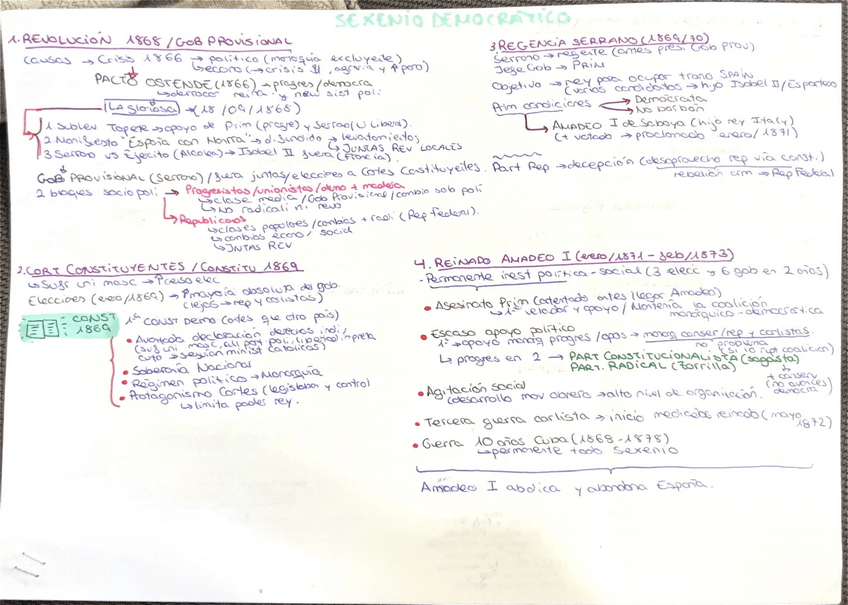 SEXENIO DEMOCRÁTICO
1. REVOLUCIÓN 1868 / GOB PROVISIONAL
causas → Crisis 1866 → político (monarquía excluyente)
↳ econo (→ crisis
PACTO OSTENDE (1866) → progres/democra
↳ derrocar reina y new sist poli
La gloriosa → (18/09/1868)
1. Sublev Topete → apoyo de Prim (progre) y Serrano (U Liberal).
2. Manifiesto "España con Honra" → difundido → levantamientos,
↳ JUNTAS REV LOCALES
3 Serrano vs Ejército (Alcolea) → Isabel II fuera (Francia).
GOB PROVISIONAL (Serrano) / fuera juntas/elecciones a Cortes Constituyentes.
2 bloques sociopoli → Progresistas/unionistas/demo + modera
↳ clase media / Gob Provisional / cambio sob poli
↳ No radicali ni revo
↳ Republicanos
↳ clases populares / cambios + radi (Rep Federal).
↳ cambios econo / social
↳ JNTAS REV
2. CORT CONSTITUYENTES / CONSTITU 1869
↳ Sufr uni masc → ↑ censo elec
Elecciones (enero/1869) → ↑ mayoría absoluta de gob
(lejos → rep y carlistas)
CONST 1869
1ª CONST Demo (antes que otro país)
• Avanzada declaración derechos indi/
(suf uni masc, all part poli, lib penal imprenta
culto → sesión minist católicos)
• Soberanía Nacional
• Régimen político → Monarquía
• Protagonismo Cortes (legislaban y control)
↳ limita poder rey.
3 REGENCIA SERRANO (1869/70)
Serrano → regente (antes pres. Gob Prov)
Jefe Gob → PRIM
Objetivo → rey para ocupar trono SPAIN
(varios candidatos → hijo Isabel II / Espartero
Prim condiciones → Demócrata
→ No borbón
↳ AMADEO I de Saboya (hijo rey Italy)
(+ votado → proclamado enero/1871)
Part Rep → decepción (desaprovecho rep vía const.)
rebelión arm → Rep Federal
4. REINADO AMADEO I (enero/1871 - feb/1873)
- Permanente inest política - social (3 elecc y 6 gob en 2 años)
• Asesinato Prim (atentado antes llegar Amadeo)
↳ 1º valedor y apoyo / Mantenía la coalición
monárquico - democrática
• Escaso apoyo político
1º → apoyo monarq progres / opos → monarq conser / rep y carlistas.
no problema
(si no rupt coalición)
↳ progres en 2 → PART CONSTITUCIONALISTA (sagasta)
PART. RADICAL (Zorrilla)
+ conserv
(no avances democra)
• Agitación social
(desarrollo mov obrero → alto nivel de organización.
• Tercera guerra carlista → inicio mediados reinado (mayo 1872)
• Guerra 10 años Cuba (1868 - 1878)
↳ permanente todo Sexenio
Amadeo I abdica y abandona España.